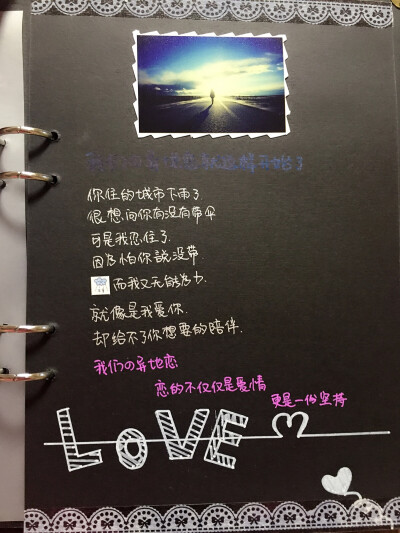 我们の异地恋就这样开始了
你住的城市下雨了
很想问你有没有带伞
可是我忍住了.
因为怕你说没带
而我又无能为力.
就像是我爱你.
却给不了你想要的陪伴.
我们の异地恋
恋的不仅仅是爱情
更是一份坚持
LOVE